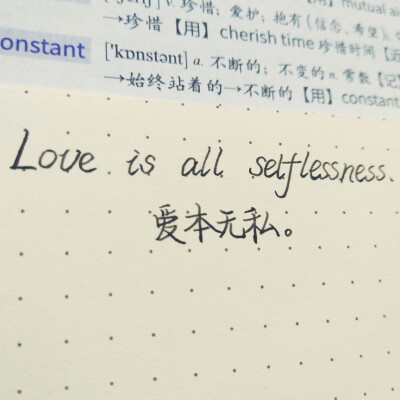 v. 珍惜；爱护；抱有（信念、希望）；
→珍惜【用】cherish time 珍惜时间【近
mutual
onstant ['kɒnstənt] a. 不断的；不变的 n. 常数【记】
→始终站着的→不断的【用】constant
Love is all selflessness.
爱本无私。